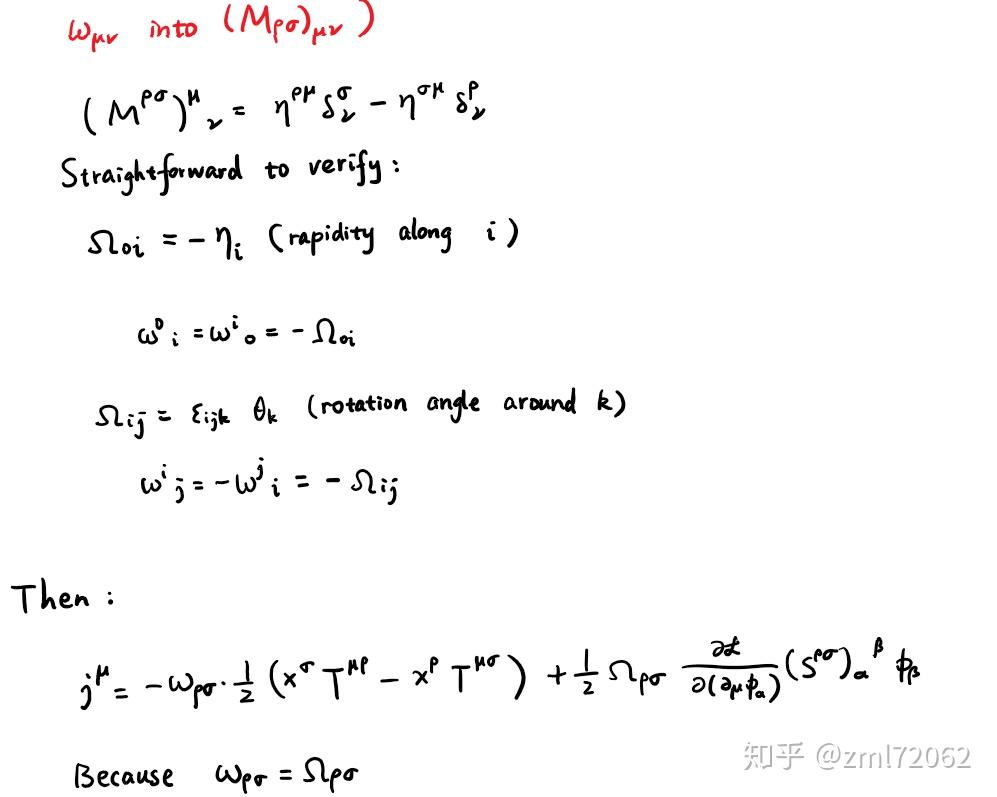 ω_{μν} into (M_{ρσ})_{μν})
(M^{ρσ})^μ_ν = η^{ρμ} δ^σ_ν − η^{σμ} δ^ρ_ν
Straightforward to verify:
Ω_{0i} = − η_i (rapidity along i)
ω^0_i = ω^i_0 = − Ω_{0i}
Ω_{ij} = ε_{ijk} θ_k (rotation angle around k)
ω^i_j = − ω^j_i = − Ω_{ij}
Then:
j^μ = − ω_{ρσ} · 1/2 (x^σ T^{μρ} − x^ρ T^{μσ}) + 1/2 Ω_{ρσ} ∂ℒ/∂(∂_μ ϕ_α) (S^{ρσ})_α^β ϕ_β
Because ω_{ρσ} = Ω_{ρσ}
知乎 @zml72062